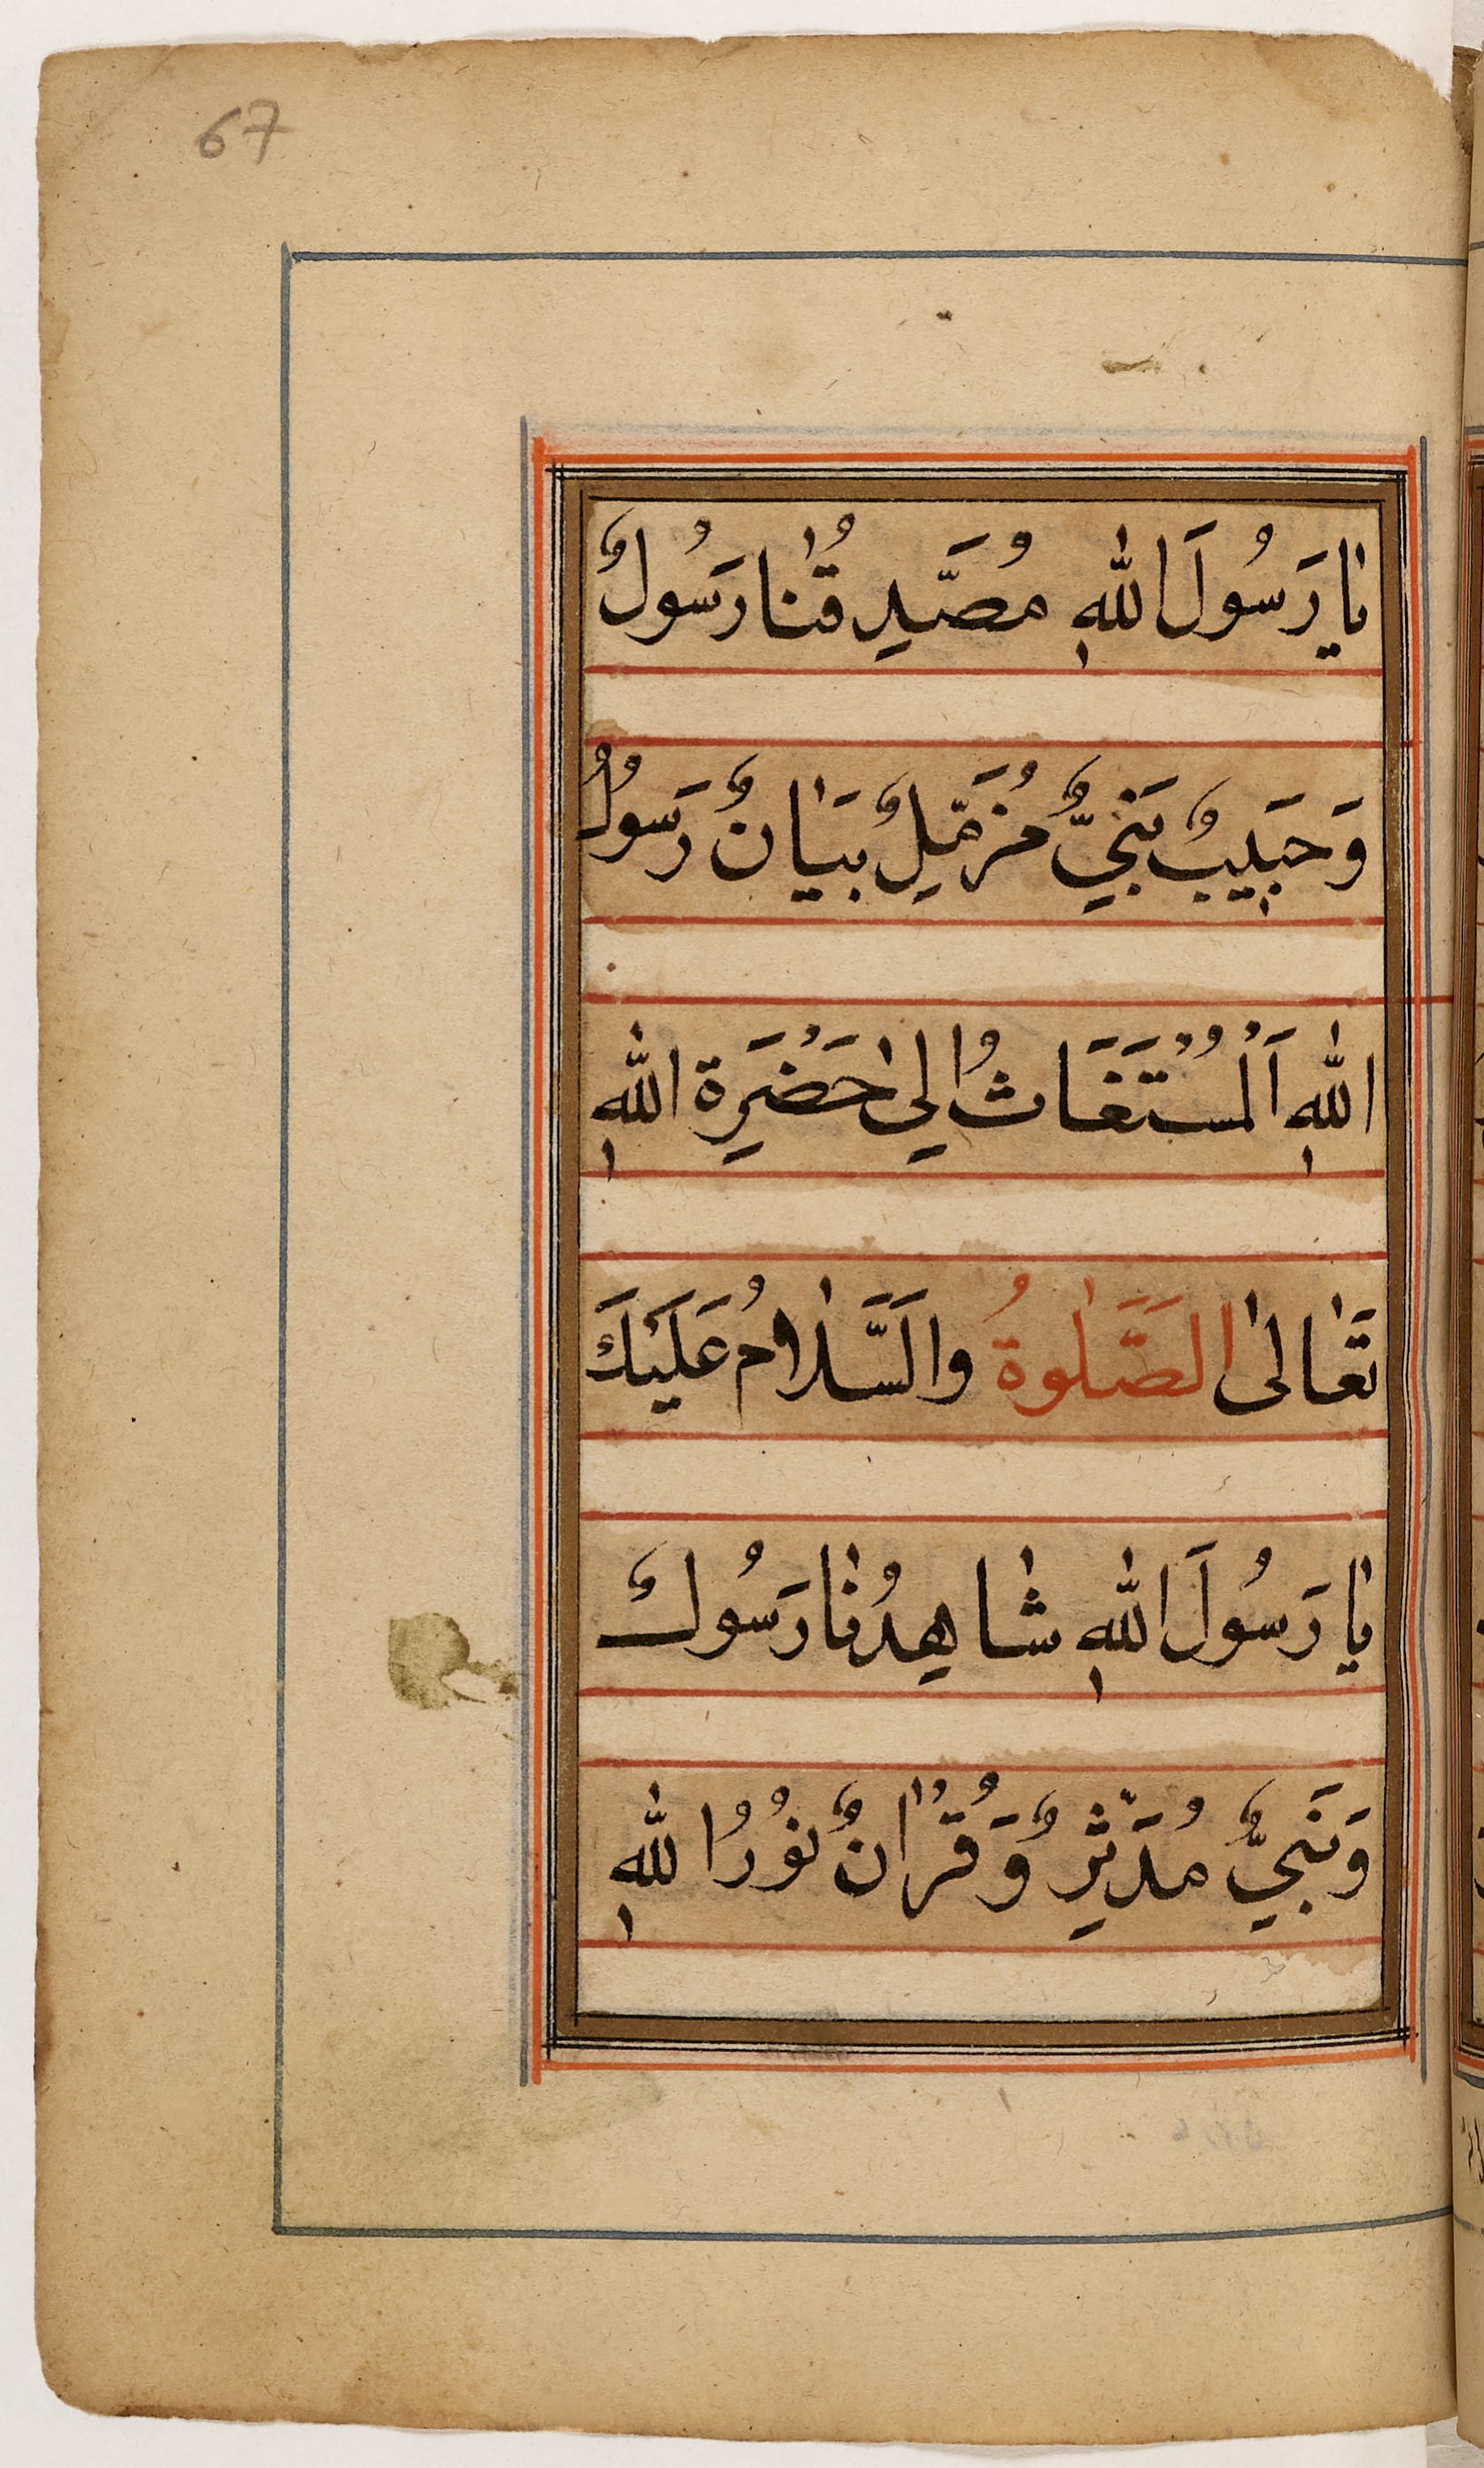 67
يا رَسُولَ اللهِ مُصَّدِقُنا رَسُولٌ
وَحَبَيِبٌ نَبَيٌّ مُزَمِّلٌ بَيَانٌ رَسَولُ
اللهِ اَلْمُسْتَغَاثُ اِلىٰ حَضْرَةِ اللهِ
تَعَالىٰ الصَّلٰوةُ والسَّلَامُ عَلَيْكَ
يا رَسُولَ اللهِ شَاهِدُنا رَسُولٌ
وَنَبَيٌّ مُدَّثِرٌ وَقُرْاٰنٌ نُورُ اللهِ